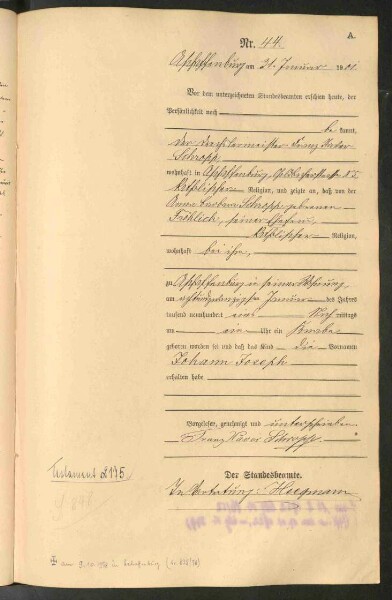 A.
Nr. 44.
Aschaffenburg am 31. Januar 1901.
Vor dem unterzeichneten Standesbeamten erschien heute, der
Persönlichkeit nach
be kannt,
der Drechslermeister Franz Xaver
Schropp
wohnhaft in Aschaffenburg,
katholischer Religion, und zeigte an, daß von der
Anna Barbara Schropp geborenen
Fröhlich, seiner Ehefrau,
katholischer Religion,
wohnhaft bei ihm,
zu Aschaffenburg in seiner Wohnung,
am achtundzwanzigsten Januar des Jahres
tausend neunhundert eins Nachmittags
um ein Uhr ein Knabe
geboren worden ist und daß das Kind die Vornamen
Johann Joseph
erhalten habe
Vorgelesen, genehmigt und unterschrieben
Franz Xaver Schropp.
Der Standesbeamte.
In Vertretung: Hegmann
Testament 2195